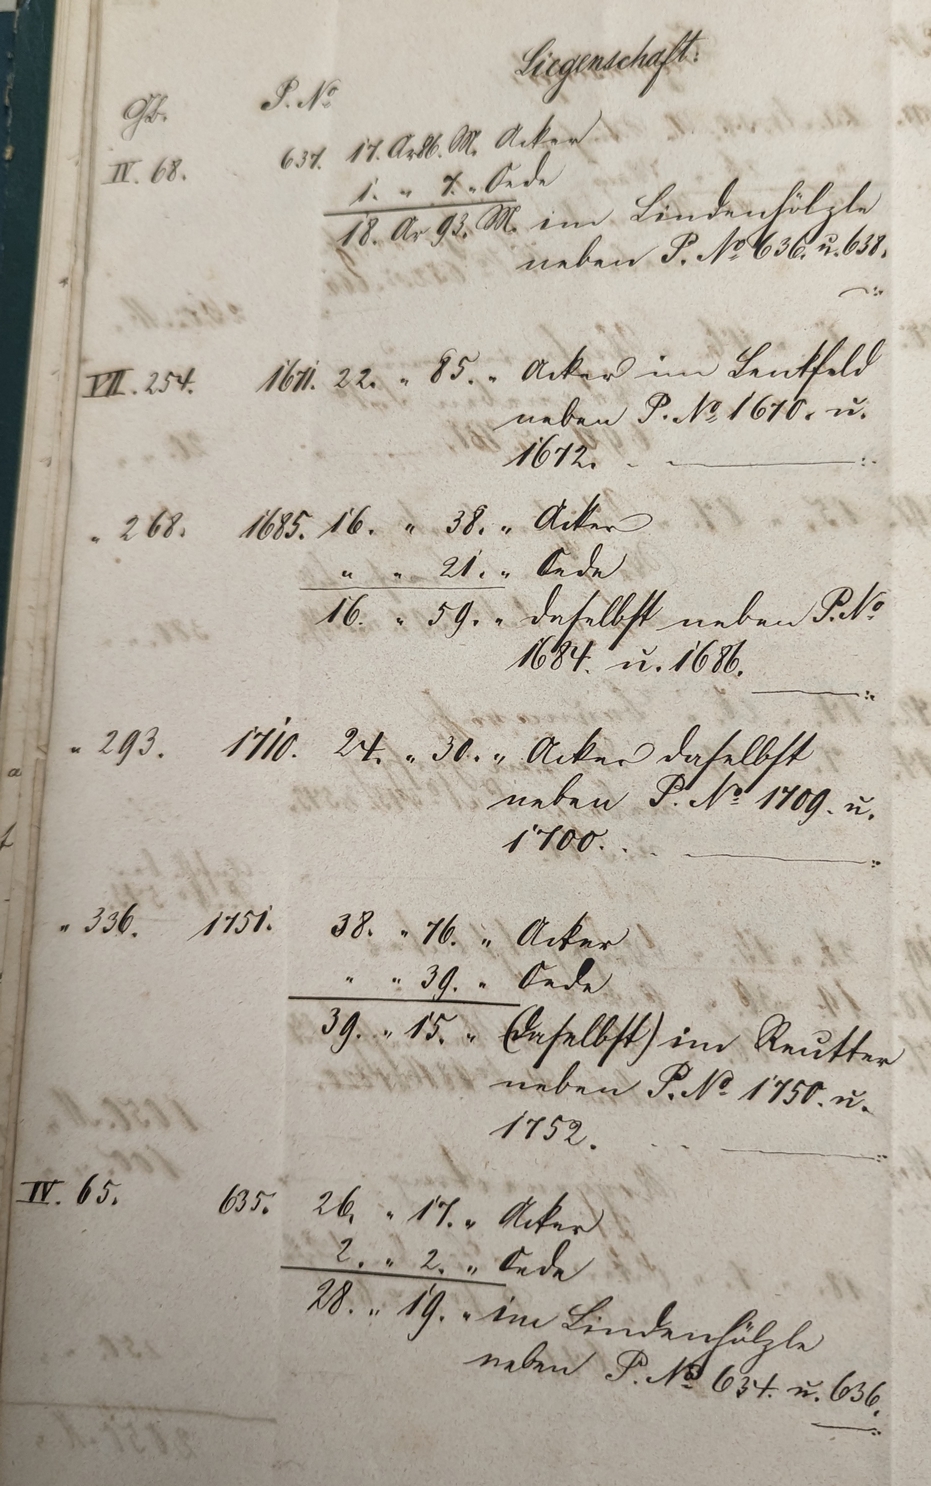 Liegenschaft.
Gb. P. No
IV. 68. 637. 17. Ar 86. M. Acker
1. " 7. " Oede
18. Ar 93. M. im Lindenhölzle
neben P. No 636. u. 638.
VII. 254. 1671. 22. " 85. " Acker im Lentfeld
neben P. No 1670. u.
1672.
" 268. 1685. 16. " 38. " Acker
" " 21. " Oede
16. " 59. " daselbst neben P. No
1684. u. 1686.
" 293. 1710. 24. " 30. " Acker daselbst
neben P. No 1709. u.
1700.
" 336. 1751. 38. " 76. " Acker
" " 39. " Oede
39. " 15. " (daselbst) im Reutter
neben P. No 1750. u.
1752.
IV. 65. 635. 26. " 17. " Acker
2. " 2. " Oede
28. " 19. " im Lindenhölzle
neben P. No 634. u. 636.